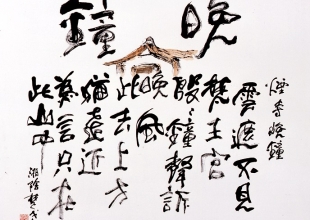 晚鐘
煙寺晚鐘
雲遮不見
梵王宮
殷々鐘聲訴
晚風
此去上方
猶遠近
為言只在
此山中
湘陰楚戈